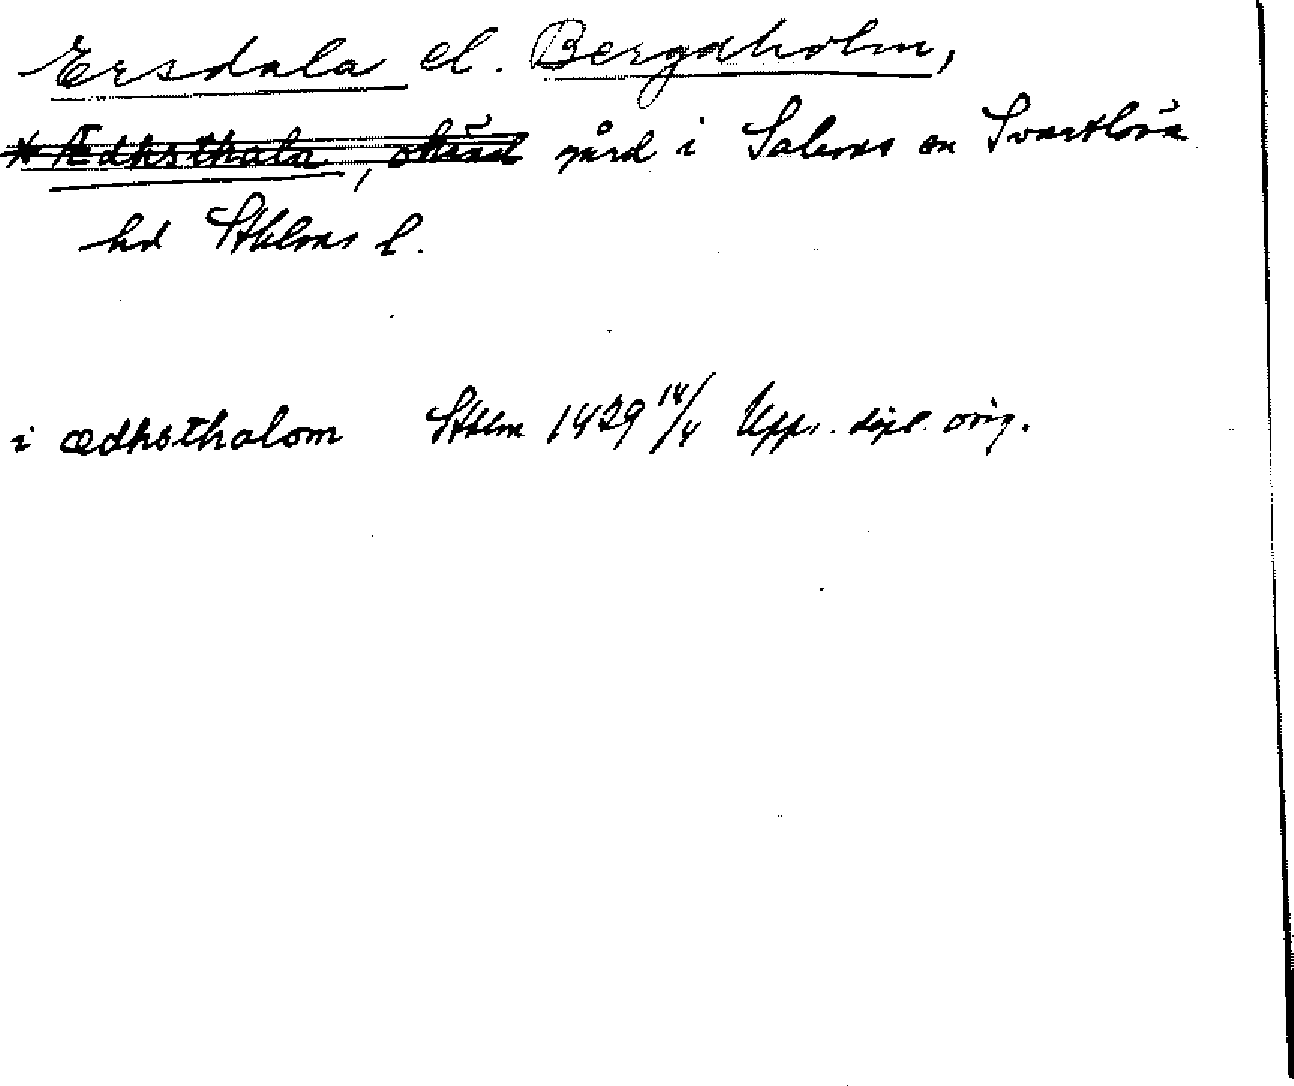 Ersdala el. Bergaholm,
* Ædhsthala, okänd gård i Salems sn Svartlösa
hd Sthlms l.
i ædhsthalom Sthlm 1429 14/4 Upps. dipl. orig.